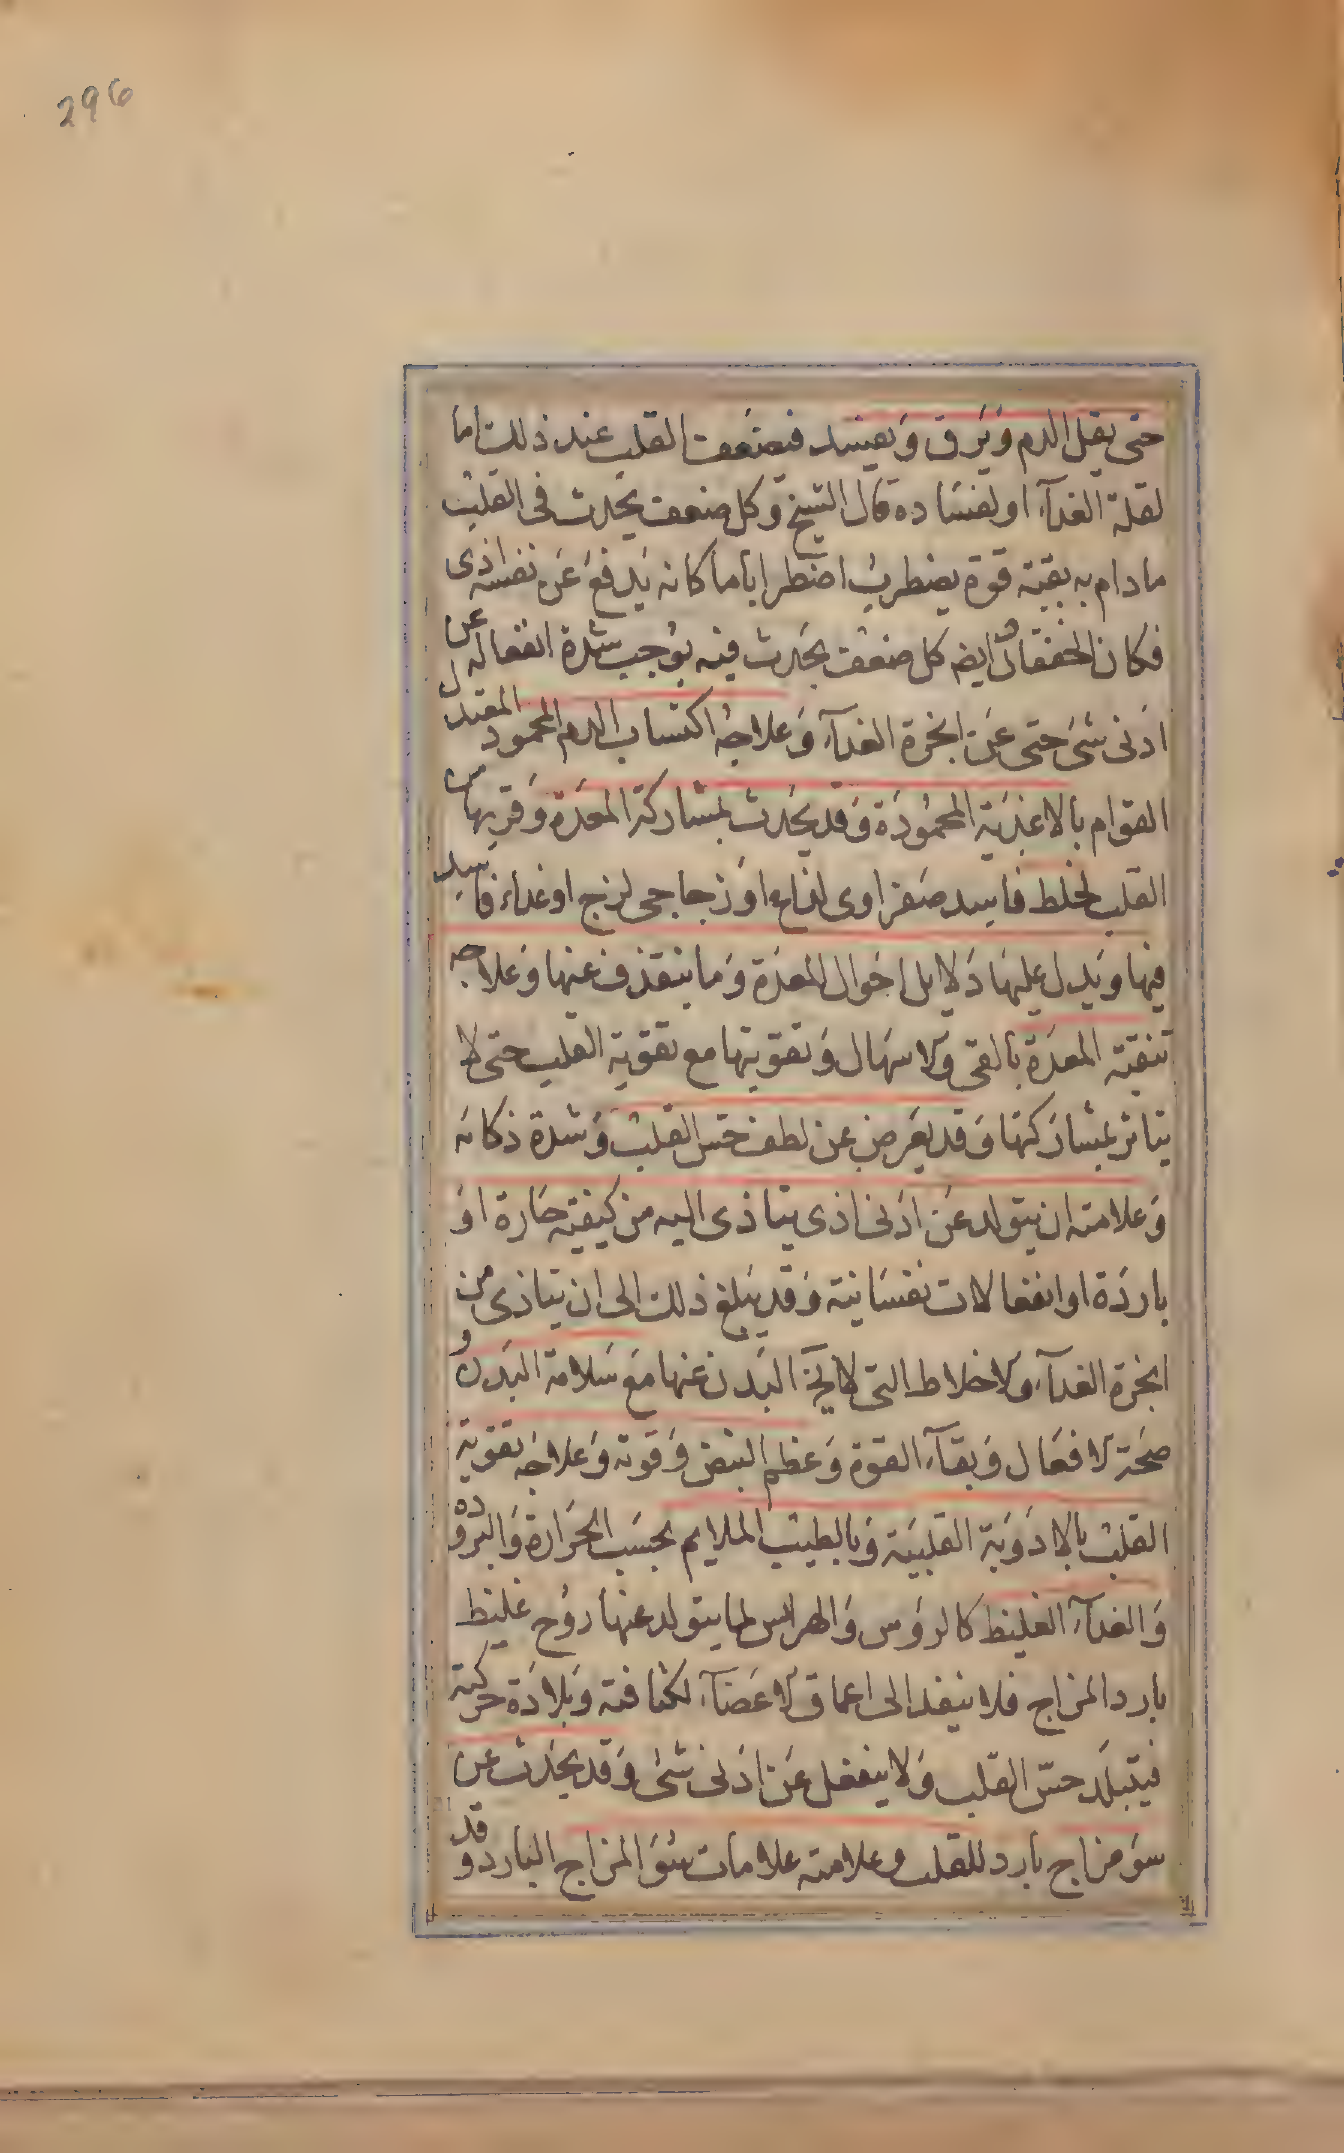 296
حتى يقل الدم وَيَرق وَيفسد فيضعف القلب عند ذلك اما
لقلة الغدآء او لفسَاده قال الشيخ وكل ضعف يحدث فى القلب
مادام به بقية قوة يضطربُ اضطرابا ما كانه يَدفعُ عَن نفسه اذى
فكان الخفقان ايضه كل ضعف يحدث فيه يوجب شدة انفعاله عن
ادنى شئ حتى عَن ابخرة الغدآء وَعلاجهُ اكتساب الدم المحمود المعتدل
القوام بالاغذية المحمُودَة وَقد يحَدث بمشاركة المعدَة وَقربها من
القلب لخلط فاسد صَفراوى لذاع اوَ زجاجى لزج او غداء فاسد
فيها وَيدل عليهَا دَلايل احَوال المعدَة وَما ينقذف عنها وَعلاجه
تنقية المعدَة بالقى وَالاسهَال وَتقويتها مع تقوية القلب حتى لا
يتاثر بمشارَكتها وَقد يعَرض عن لطف حس القلب وَشدة ذكائه
وَعلامته ان يتولد عَن ادَنى اذى يتاذى اليه من كيفية حَارة اوَ
باردَة او انفعالات نفسَانية وَقد يَبلغ ذلك الى ان يتاذى من
ابخرة الغدآء وَالاخلاط التى لا يخ البَدن عنها مَع سَلامة البَدن و
صحَة الافعَال وَبقآء القوة وَعظم النبض وَقوته وَعلاجه تقوية
القلب بالادَوَية القلبيَة وَبالطيب الملايم بحسَب الحَرارة وَالبرودة
وَالغدآء الغليظ كالرؤس وَالهرايس لما يتولد عنها روُح غليظ
بارد المزاج فلا ينفد الى اعماق الاعَضآء لكثافته وَبلادَة حركته
فيتبلَد حسّ القلب وَلا ينفعل عَن ادَنى شئ وَقد يحَدث عن
سوَ مزاج بارد للقلب وعلامته علامات سُوَ المزاج البارد وقد